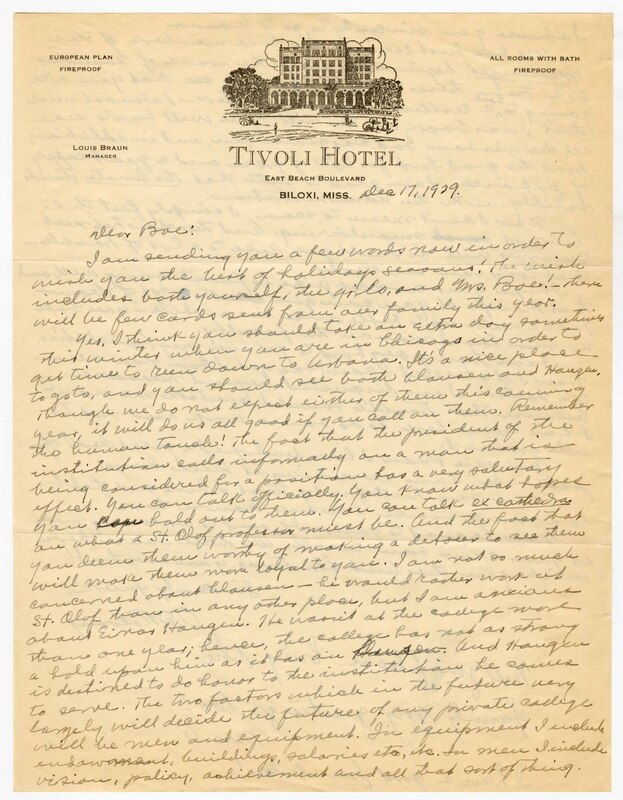 EUROPEAN PLAN
FIREPROOF
ALL ROOMS WITH BATH
FIREPROOF
LOUIS BRAUN
MANAGER
TIVOLI HOTEL
EAST BEACH BOULEVARD
BILOXI, MISS. Dec 17, 1929.
Dear Boe:
I am sending you a few words now in order to
wish you the best of holidays seasons! The wish
includes both yourself, the girls, and Mrs. Boe! — there
will be few cards sent from our family this year.
Yes, I think you should take an extra day sometime
this winter when you are in Chicago in order to
get time to run down to Urbana. It's a nice place
to go to, and you should see both Clausen and Haugen.
Though we do not expect either of them this coming
year, it will do us all good if you call on them. Remember
the human touch! The fact that the president of the
institution calls informally on a man that is
being considered for a position has a very salutary
effect. You can talk officially. You know what hopes
you can hold out to them. You can talk ex cathedra
on what a St. Olaf professor must be. And the fact that
you deem them worthy of making a detour to see them
will make them more loyal to you. I am not so much
concerned about Clausen — he would rather work at
St. Olaf than in any other place, but I am anxious
about Einar Haugen. He wasn't at the college more
than one year; hence, the college has not as strong
a hold upon him as it has on Clausen. And Haugen
is destined to do honor to the institution he comes
to serve. The two factors which in the future very
largely will decide the future of any private college
will be men and equipment. In equipment I include
endowment, buildings, salaries etc, etc. In men I include
vision, policy, achievement and all that sort of thing.